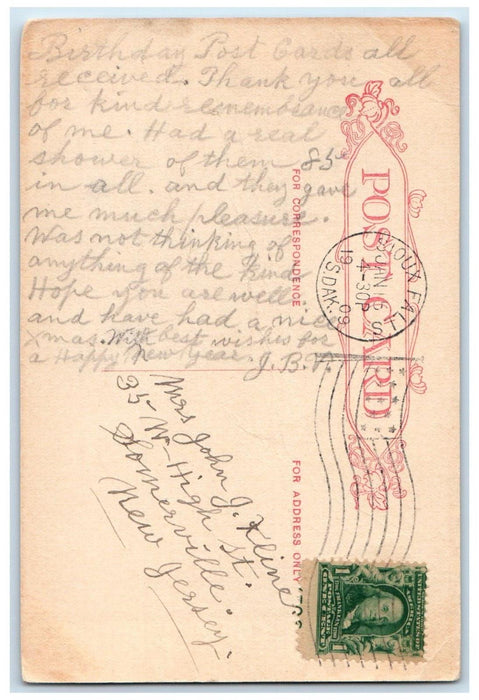 Birthday Post Cards all
received. Thank you all
for kind remembrance
of me. Had a real
shower of them 85
in all. and they gave
me much pleasure.
Was not thinking of
anything of the kind
Hope you are well
and have had a nice
Xmas. With best wishes for
a Happy New Year. J.B.H.
POST CARD
FOR CORRESPONDENCE
SIOUX FALLS
JAN 6
4-30P
1909
S.DAK.
FOR ADDRESS ONLY
Mrs John J. Kline
35 W. High St.
Somerville.
New Jersey.
UNITED STATES OF
AMERICA
FRANKLIN
POSTAGE
ONE CENT
1 1